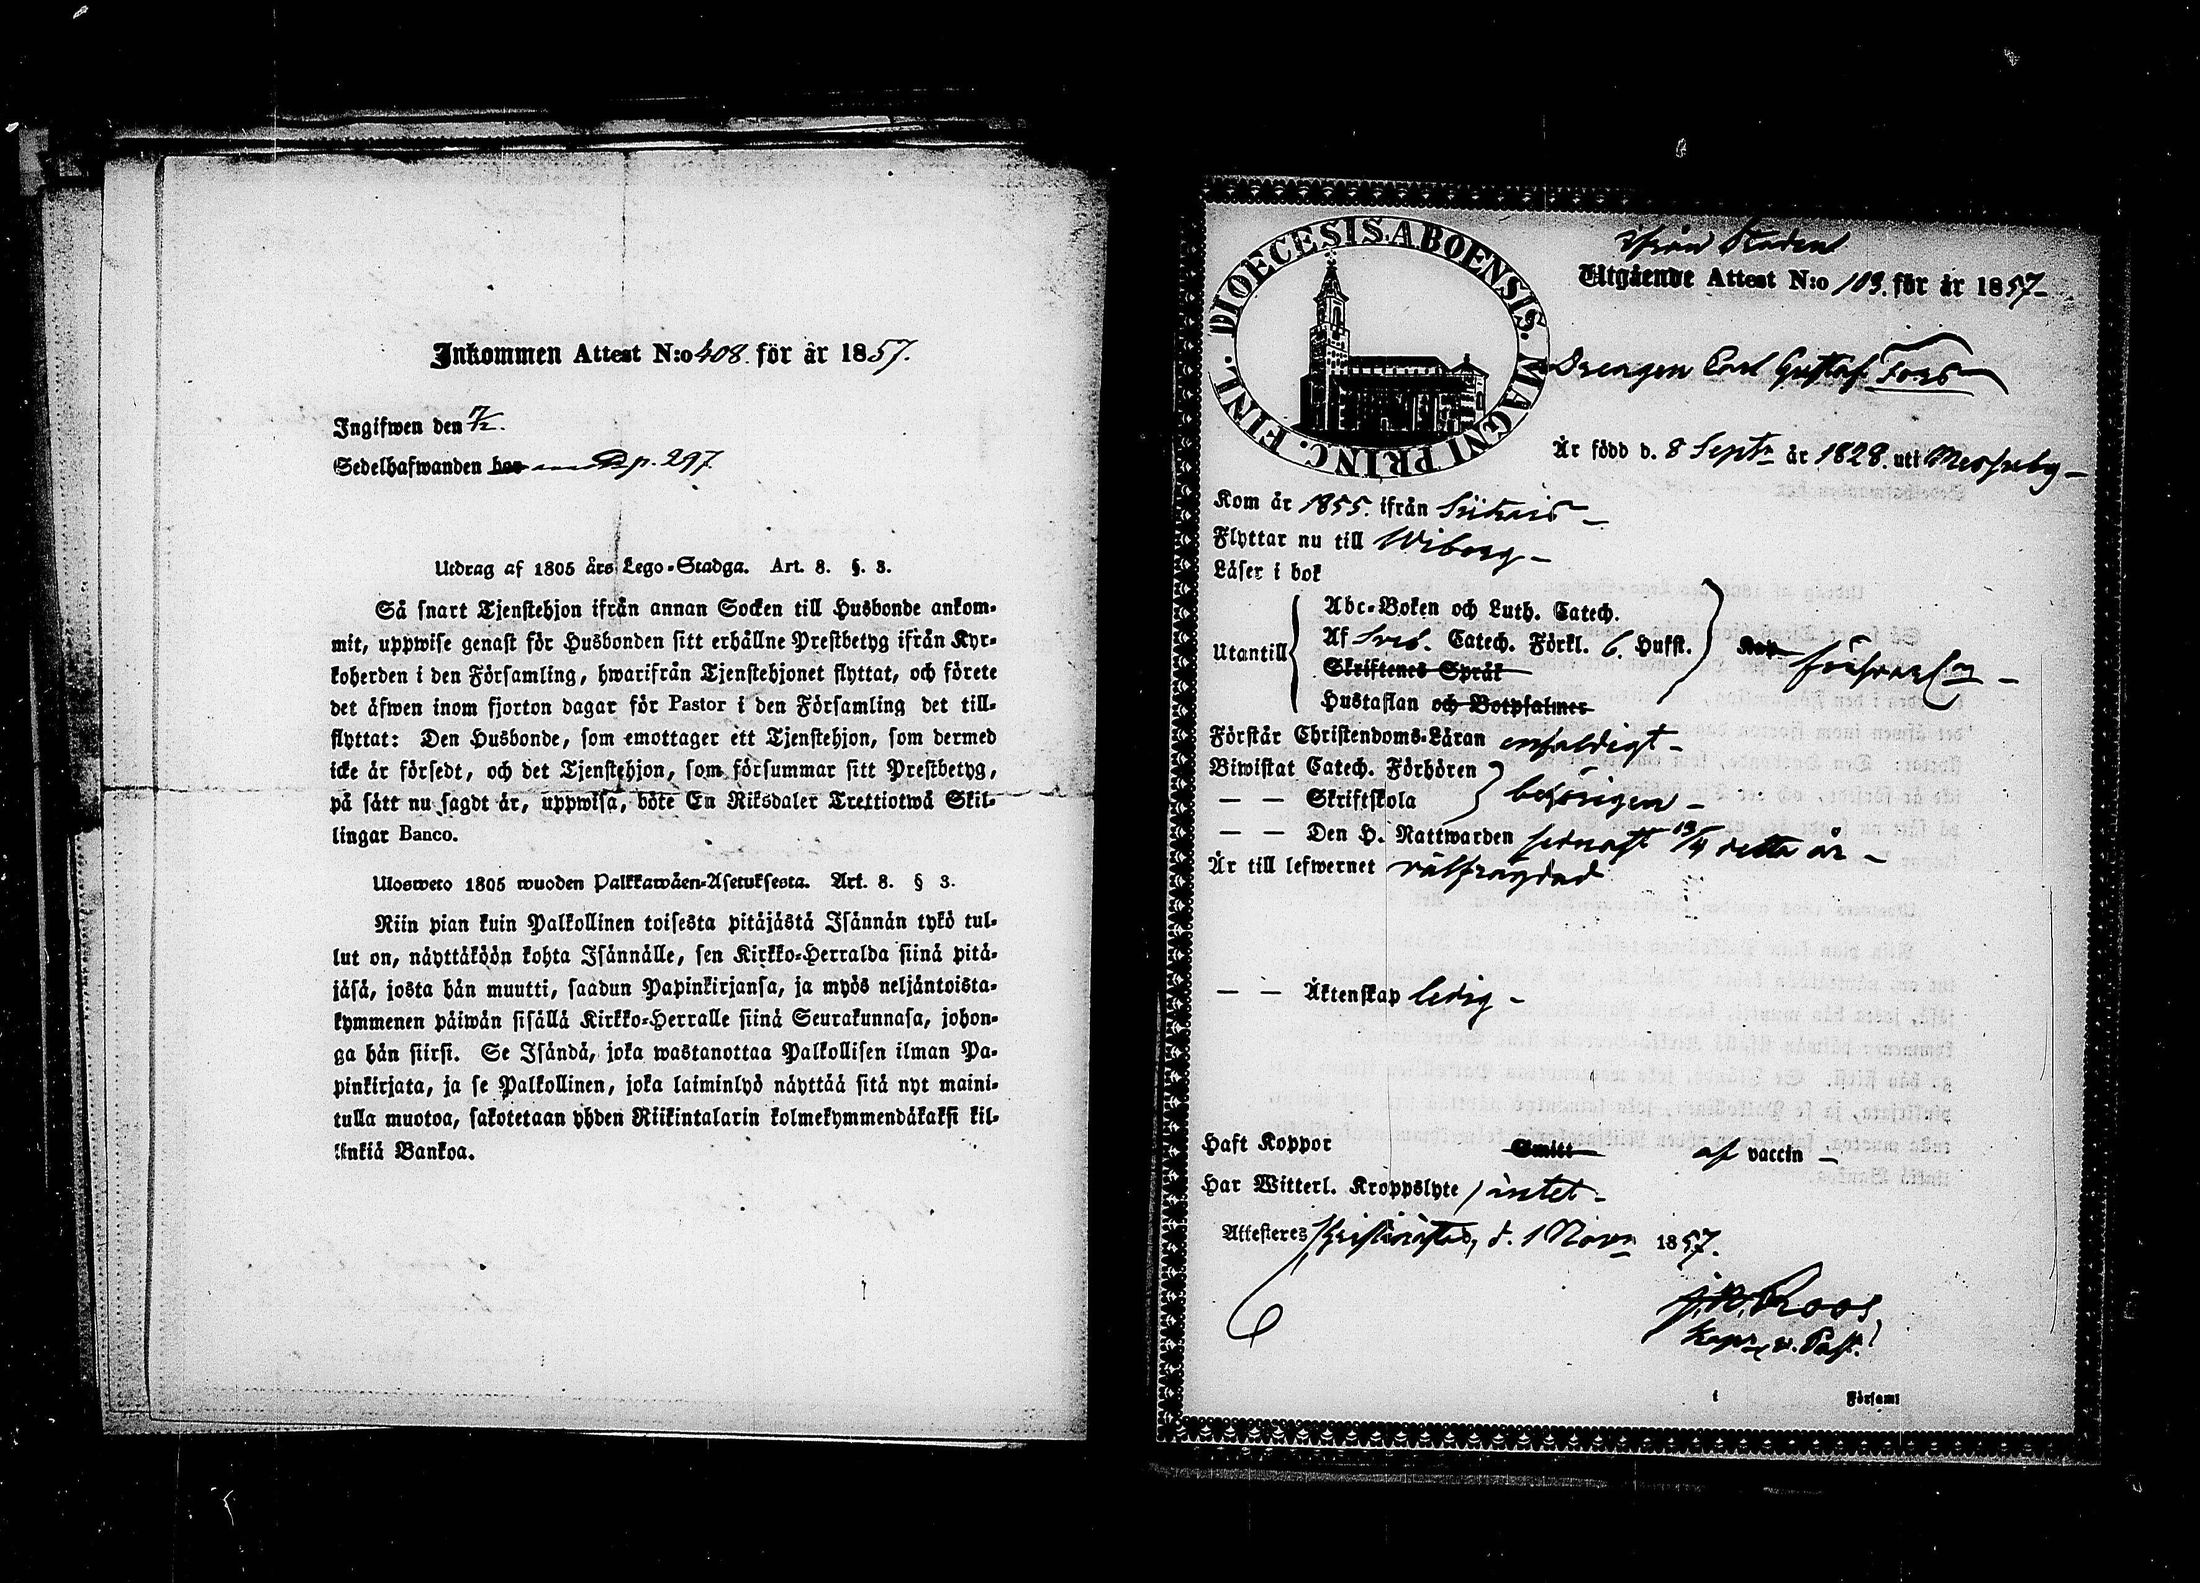 Inkommen Attest N:o 408. för år 1857.
Ingifwen den 7/12.
Sedelhafwanden hos p. 297
Utdrag af 1805 års Lego-Stadga. Art. 8. §. 3.
Så snart Tjenstehjon ifrån annan Socken till Husbonde ankom-
mit, uppwise genast för Husbonden sitt erhållne Prestbetyg ifrån Kyr-
koherden i den Församling, hwarifrån Tjenstehjonet flyttat, och förete
det äfwen inom fjorton dagar för Pastor i den Församling det till-
flyttat: Den Husbonde, som emottager ett Tjenstehjon, som dermed
icke är försedt, och det Tjenstehjon, som försummar sitt Prestbetyg,
på sätt nu sagdt är, uppwisa, böte En Riksdaler Trettiotwå Skil-
lingar Banco.
Ulosweto 1805 wuoden Palkkawäen-Asetuksesta. Art. 8. § 3.
Niin pian kuin Palkollinen toisesta pitäjästä Isännän tykö tul-
lut on, näyttäköön kohta Isännälle, sen Kirkko-Herralda siinä pitä-
jäsä, josta hän muutti, saadun Papinkirjansa, ja myös neljäntoista-
kymmenen päiwän sisällä Kirkko-Herralle siinä Seurakunnasa, johon-
ga hän siirsi. Se Isändä, joka wastanottaa Palkollisen ilman Pa-
pinkirjata, ja se Palkollinen, joka laiminlyö näyttää sitä nyt maini-
tulla muotoa, sakotetaan yhden Riikintalarin kolmekymmendäkaksi kil-
linkiä Bankoa.
DIOECESIS. ABOENSIS. MAGNI PRINC. FINL.
Ifrån Staden
Utgående Attest N:o 103. för år 1857-
Drengen Carl Gustaf Fors
Är född d. 8 Septr år 1828. uti Messuby-
Kom år 1855. ifrån
Flyttar nu till Wiborg-
Läser i bok
Utantill
Abc-Boken och Luth. Catech.
Af Sveb. Catech. Förkl. 6. Hufst.
Skriftenes Språk
Hustaflan och Botpsalmer
Kap försvarl
Förstår Christendoms-Läran enfaldigt-
Biwistat Catech. Förhören
— — Skriftskola
behörigen-
— — Den H. Nattwarden sednast 13/4 detta år-
Är till lefwernet välfrägdad
— — Äktenskap ledig-
Haft Koppor Smitt af vaccin -
Har Witterl. Kroppslyte / intet-
Attesteres Kristinestad, d. 1 Novr 1857.
Roos
v. Past.
i Församl